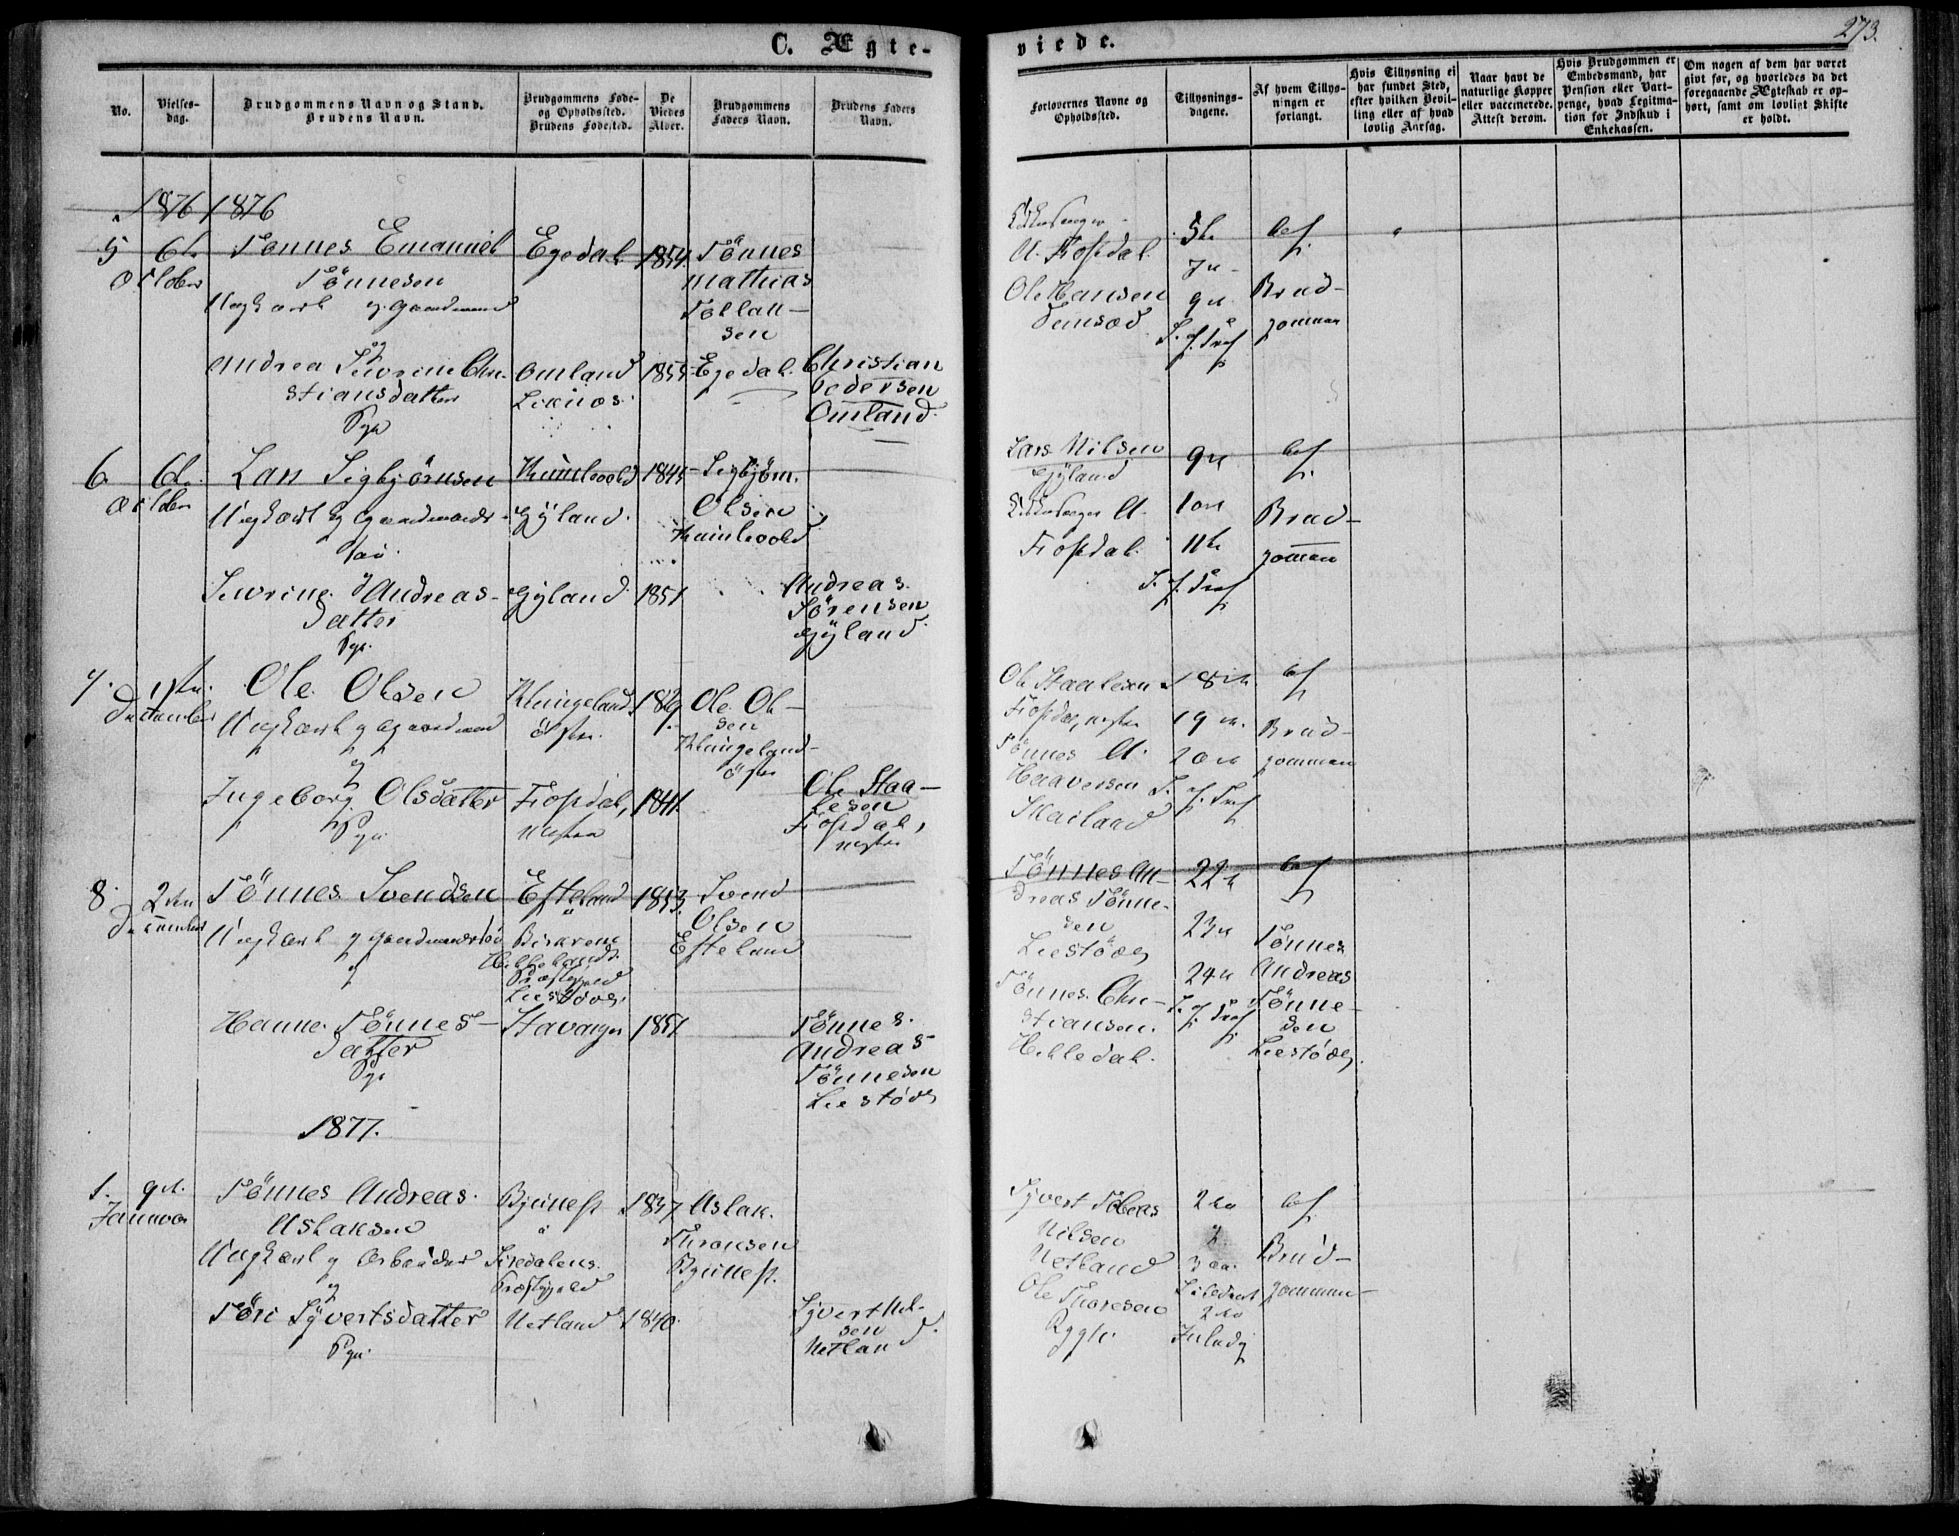 C. Ægte-
No.
Vielses-
dag.
Brudgommens Navn og Stand.
Brudens Navn.
Brudgommens Føde-
og Opholdssted.
Brudens Fødested.
De
Viedes
Alder.
Brudgommens
Faders Navn.
Brudens Faders
Navn.
1876 1876
5
6te
October
Tønnes Emanuel
Tønnesen
Ungkarl og Gaardmand
Egedal
1854
Tönnes
Mathias
Tollak-
sen
Egedal
og
Andrea Sivrine Chri-
stiansdatter
Pige
Omland
Liknæs
1855
Christian
Pedersen
Omland
6
6te
October
Lars Sigbjörnsen
Ungkarl og Gaardmands-
søn
Gyland
1845
Sigbjörn
Olsen
og
Sivrine Andreas-
datter
Pige
Gyland
1851
Andreas
Sörensen
Gyland
7.
1ste
December
Ole Olsen
Ungkarl og Gaardmand
Klungeland
östre
Ole Ol-
sen
Klungeland
östre
og
Ingeborg Olsdatter
Pige
Fiosdal,
nestre
1841
Ole Staa-
lesen
Fiosdal,
nestre
8.
2den
December
Tönnes Svendsen
Ungkarl og Gaardmandssøn
og
Efteland
i
Hekkelands
Præstegjeld
Liestöel
1853
Svend
Olsen
Efteland
Hanne Tönnes-
datter
Pige
Stavanger
1851
Tönnes
Andreas
Tönnesen
Liestöel
1877.
1.
9de
Januar
Tönnes Andreas
Aslaksen
Ungkarl og Arbeider
og
i
Siredalens
Præstegjeld
1837
Aslak
Thronsen
Töri Syvertsdatter
Pige
Netland
1840
Syvert Nil-
sen
Netland
viede.
273.
Forlovernes Navne og
Opholdssted.
Tillysnings-
dagene.
Af hvem Tillys-
ningen er
forlangt.
Hvis Tillysning ei
har fundet Sted,
efter hvilken Bevil-
ling eller af hvad
lovlig Aarsag.
Naar havt de
naturlige Kopper
eller vaccinerede.
Attest derom.
Hvis Brudgommen er
Embedsmand, har
Pension eller Vart-
penge, hvad Legitima-
tion for Indskud i
Enkekassen.
Om nogen af dem har været
givt før, og hvorledes da det
foregaaende Ægteskab er op-
hørt, samt om lovligt Skifte
er holdt.
Kirkesanger
A. Fiosdal
Ole Hansen
5te
7de
9de
Brud-
gommen
Lars Nilsen
Gyland
Kirkesanger A.
Fiosdal
9de
11te
Brud-
gommen
Ole Staalesen
Fiosdal, nestre
Tönnes A.
Haaversen
Skailand
18de
19de
20de
Brud-
gommen
Tönnes An-
dreas Tönne-
sen
Liestöel
Tönnes Chri-
stiansen
Helledal
22de
23de
24de
Tönnes
Andreas
Tönne-
sen
Liestöel
Syvert Tobias
Nilsen
Netland
Ole Thoresen
2den
og
3die
2den
Juledag
Brud-
gommen